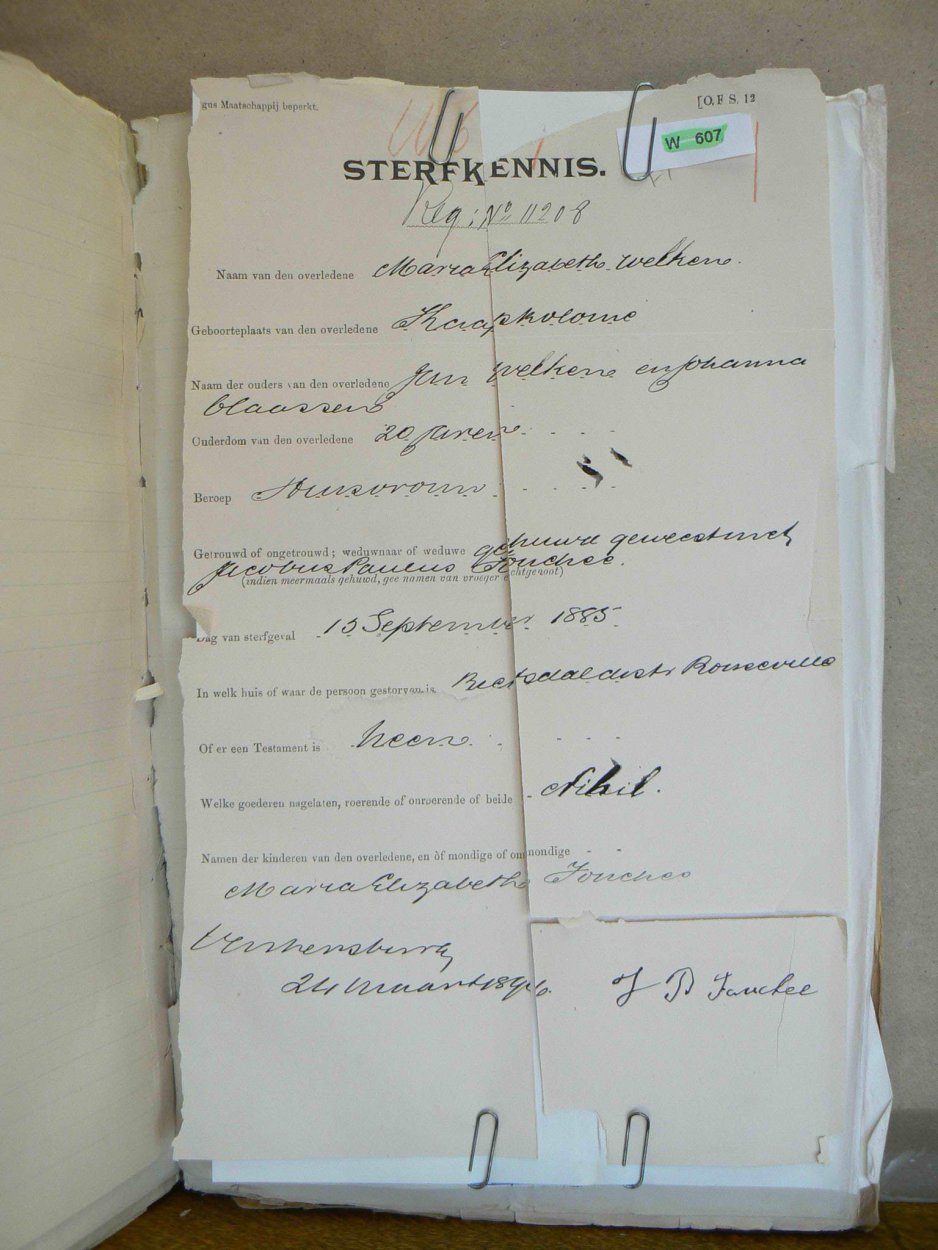 gus Maatschappij beperkt.
[O.F S. 12
W 607
STERFKENNIS.
Reg: No 11208
Naam van den overledene Maria Elizabeth Welkens.
Geboorteplaats van den overledene Kaapkolonie
Naam der ouders van den overledene Jan Welkens en Johanna
Claassens
Ouderdom van den overledene 20 Jaren
Beroep Huisvrouw
Getrouwd of ongetrouwd; weduwnaar of weduwe gehuwd geweest met
Jacobus Paulus Fouchee.
(indien meermaals gehuwd, gee namen van vroeger echtgenoot)
Dag van sterfgeval 15 September 1885
In welk huis of waar de persoon gestorven is. Rietsdal distr Rouxville
Of er een Testament is Neen
Welke goederen nagelaten, roerende of onroerende of beide Nihil.
Namen der kinderen van den overledene, en òf mondige of onmondige
Maria Elizabeth Fouchee
Ventersburg
24 Maart 1896.
J P Fouchee